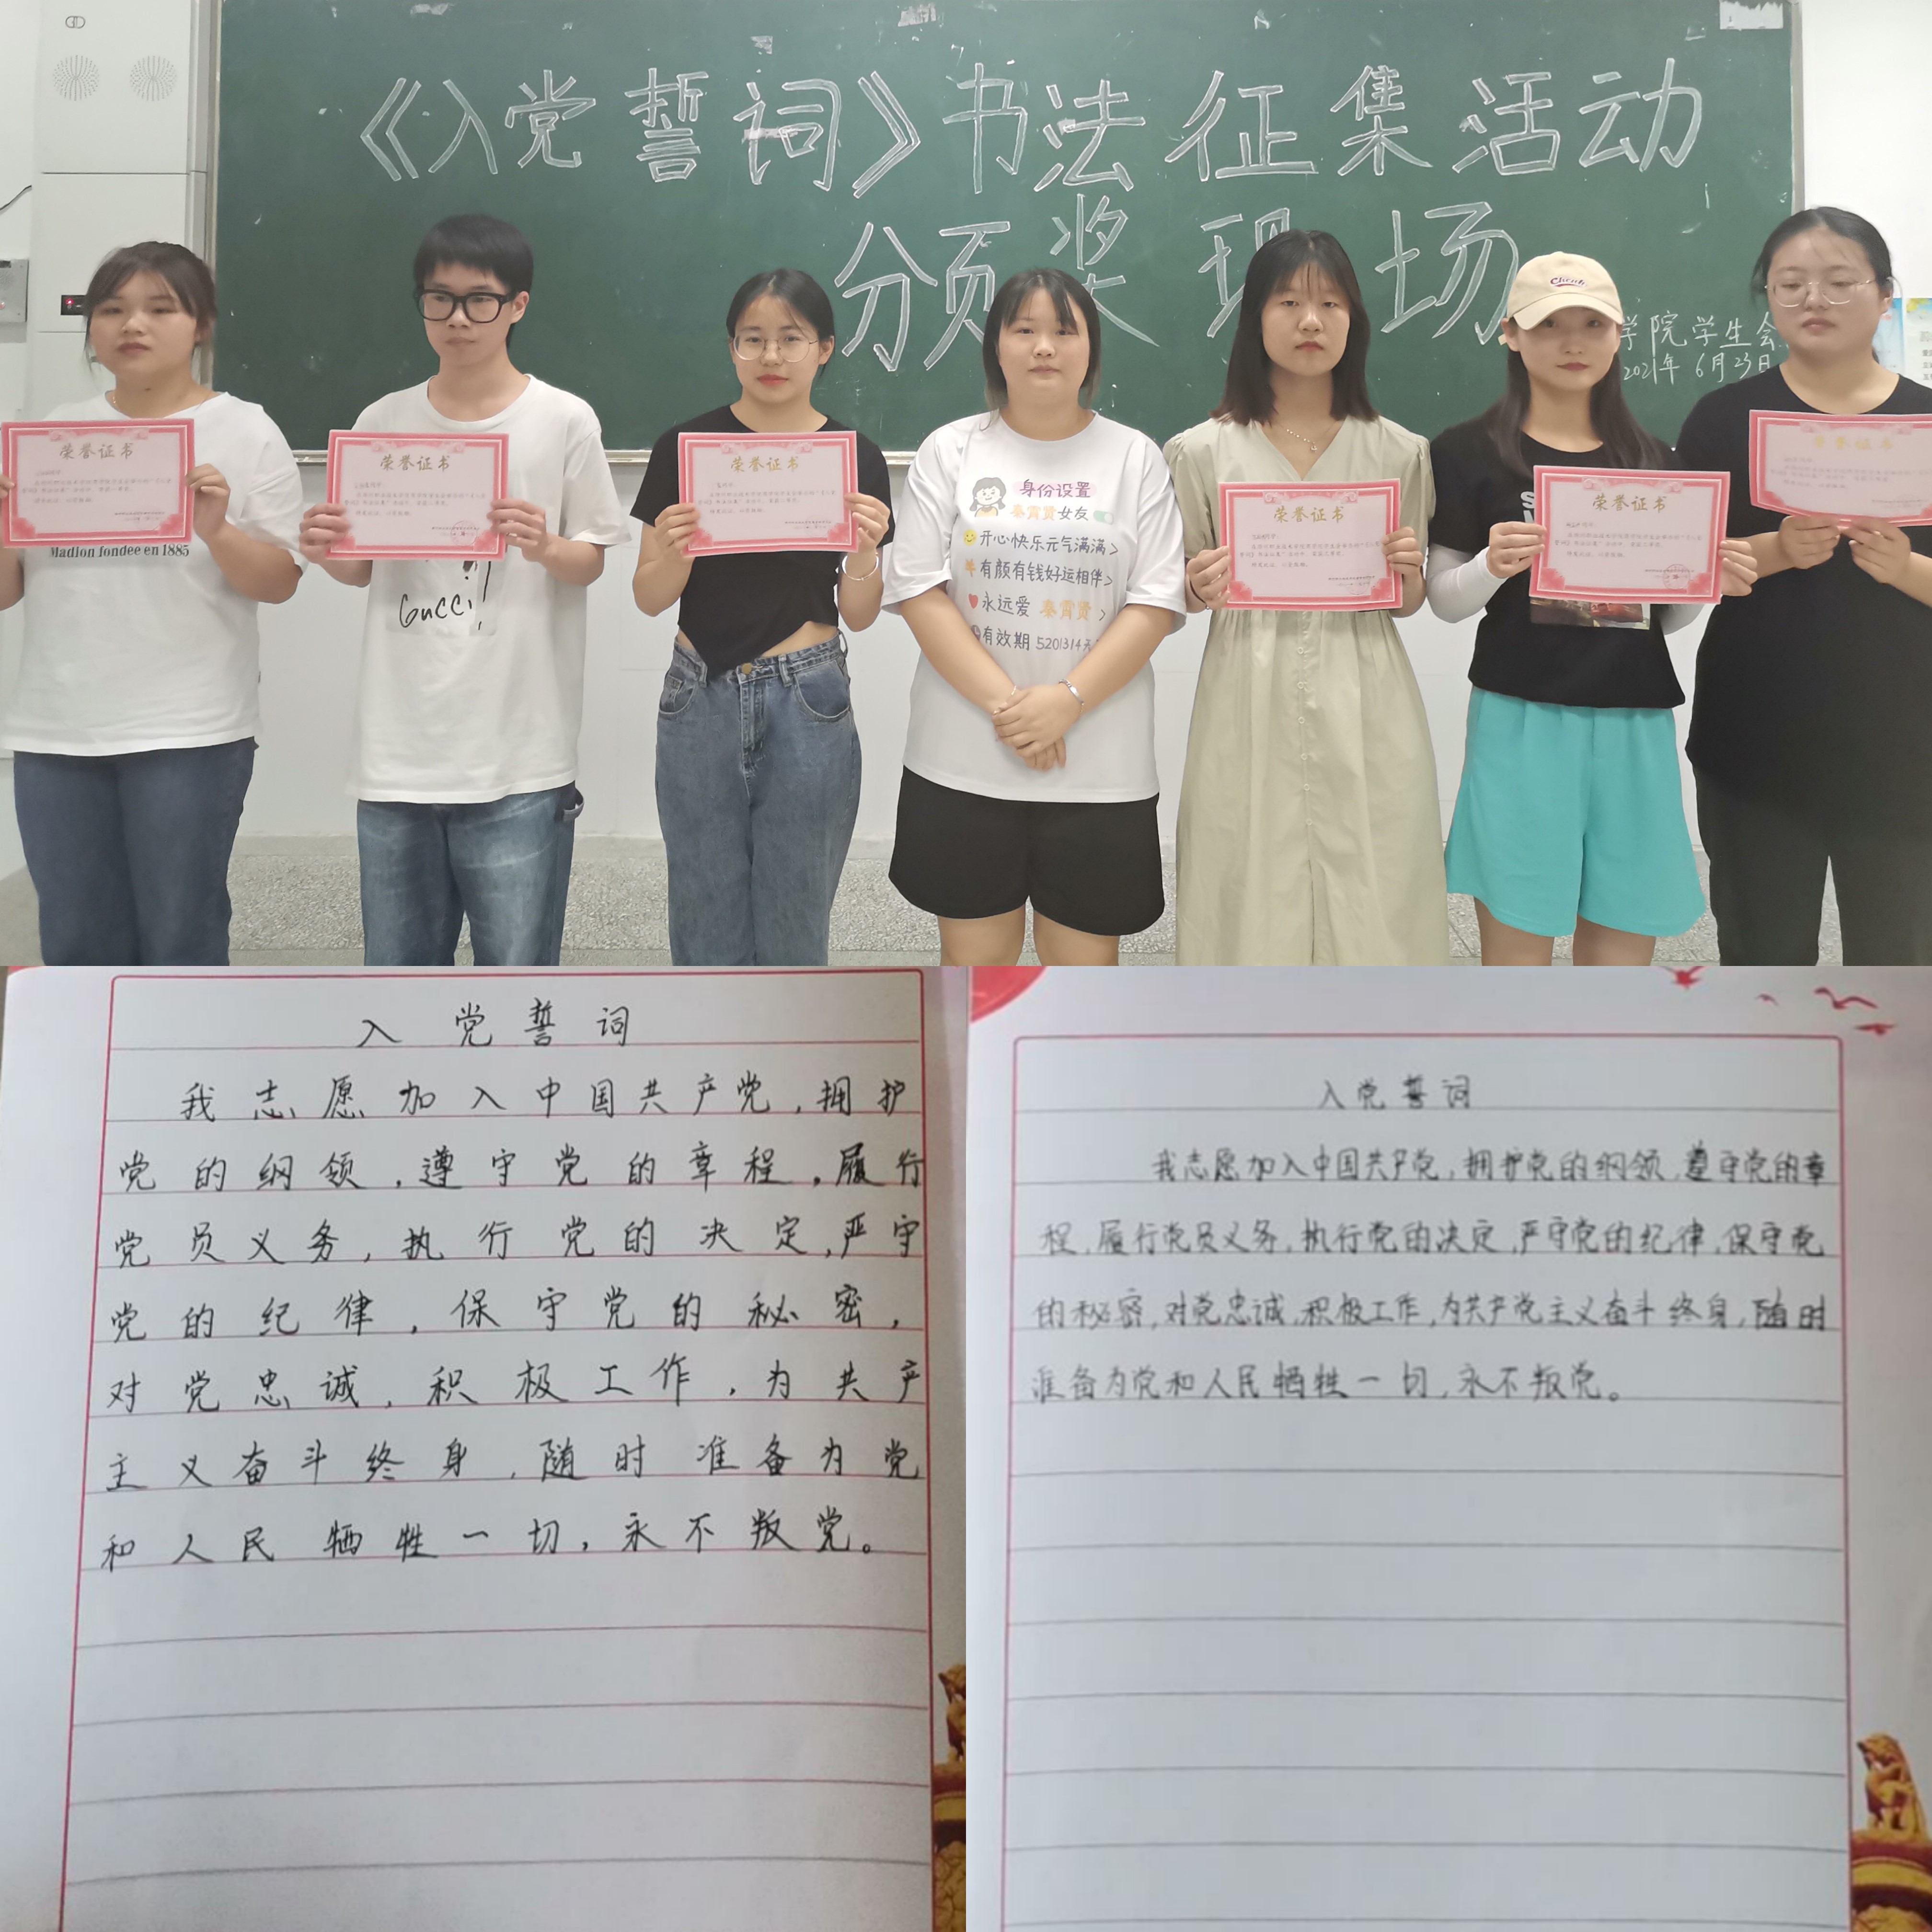 《入党誓词》书法征集活动
颁奖现场
学院学生会
2021年6月23日
荣誉证书
Madion fondee en 1885
荣誉证书
Gucci!
荣誉证书
身份设置
秦霄贤女友
开心快乐元气满满>
有颜有钱好运相伴>
永远爱 秦霄贤>
有效期 5201314
荣誉证书
荣誉证书
荣誉证书
入党誓词
我志愿加入中国共产党,拥护
党的纲领,遵守党的章程,履行
党员义务,执行党的决定,严守
党的纪律,保守党的秘密,
对党忠诚,积极工作,为共产
主义奋斗终身,随时准备为党
和人民牺牲一切,永不叛党。
入党誓词
我志愿加入中国共产党,拥护党的纲领,遵守党的章
程,履行党员义务,执行党的决定,严守党的纪律,保守党
的秘密,对党忠诚,积极工作,为共产党主义奋斗终身,随时
准备为党和人民牺牲一切,永不叛党。